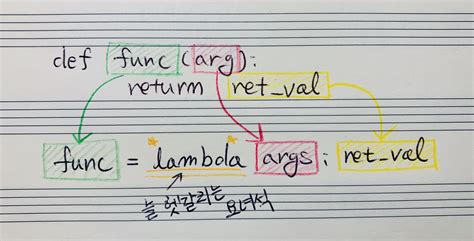 def func (arg):
return ret_val
func = lambda args : ret_val
늘 헷갈리는 요녀석